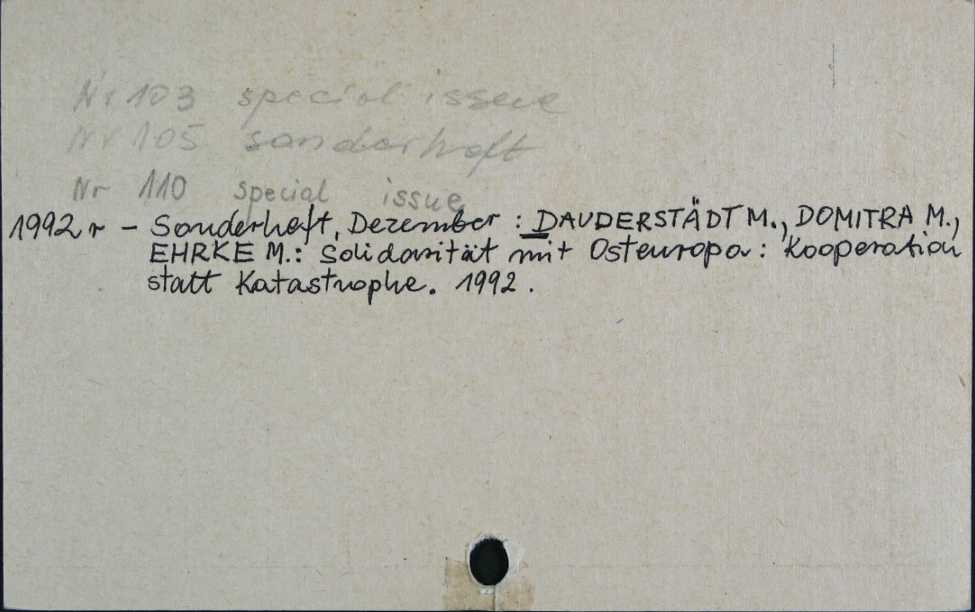 Nr 103 special issue
Nr 105 sonderheft
Nr 110 special issue
1992 r - Sonderheft, Dezember : DAUDERSTÄDT M., DOMITRA M.,
EHRKE M.: Solidarität mit Osteuropa : Kooperation
statt Katastrophe. 1992.